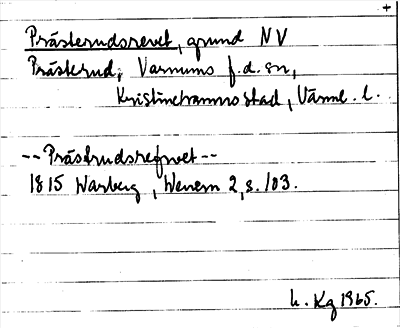 +
Prästerudsrevet, grund NV
Prästerud, Varnums f.d. sn,
Kristinehamns stad, Värml. l.
--Prästrudsrefwet--
1815 Warberg, Wenern 2, s. 103.
L. Kg 1965.